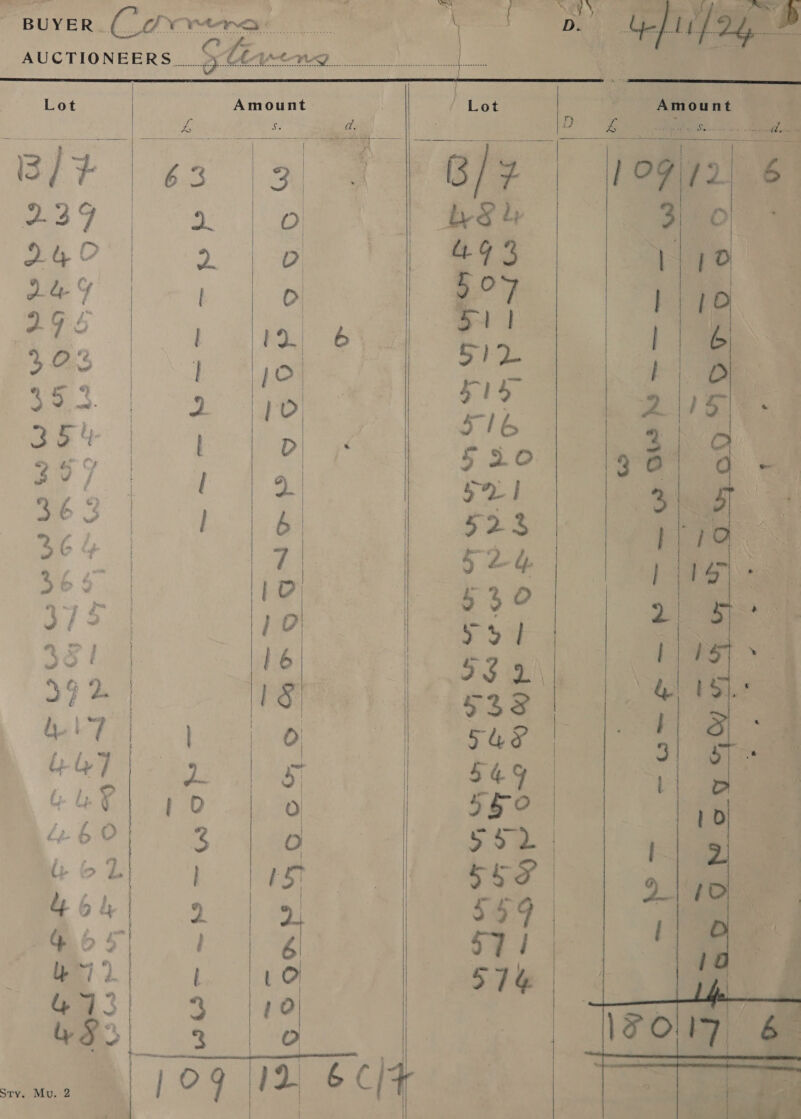 BUYER Correra D. 4/11/24
AUCTIONEERS Stevens
Lot Amount
£ s. d.
B/F 63 3
239 2 0
240 2 0
249 1 0
295 1 12 6
303 1 10
353 2 10
354 1 0
357 1 2
363 1 6
364 7
365 10
375 10
381 16
392 18
417 1 0
447 2 5
448 10 0
460 3 0
462 1 15
464 2 2
465 1 6
472 1 10
473 3 10
483 3 0
109 12 6 C/F
Sty. Mu. 2
Lot Amount
D £ s. d.
B/F 109 12 6
484 3 0
493 1 10
507 1 10
511 1 6
512 1 0
515 2 15
516 2 0
520 30 0
521 3 5
523 1 10
524 1 15
530 2 5
531 1 15
532 4 15
538 1 8
548 3 5
549 1 0
550 10
552 1 2
558 2 10
559 1 0
571 10
574 14
180 17 6